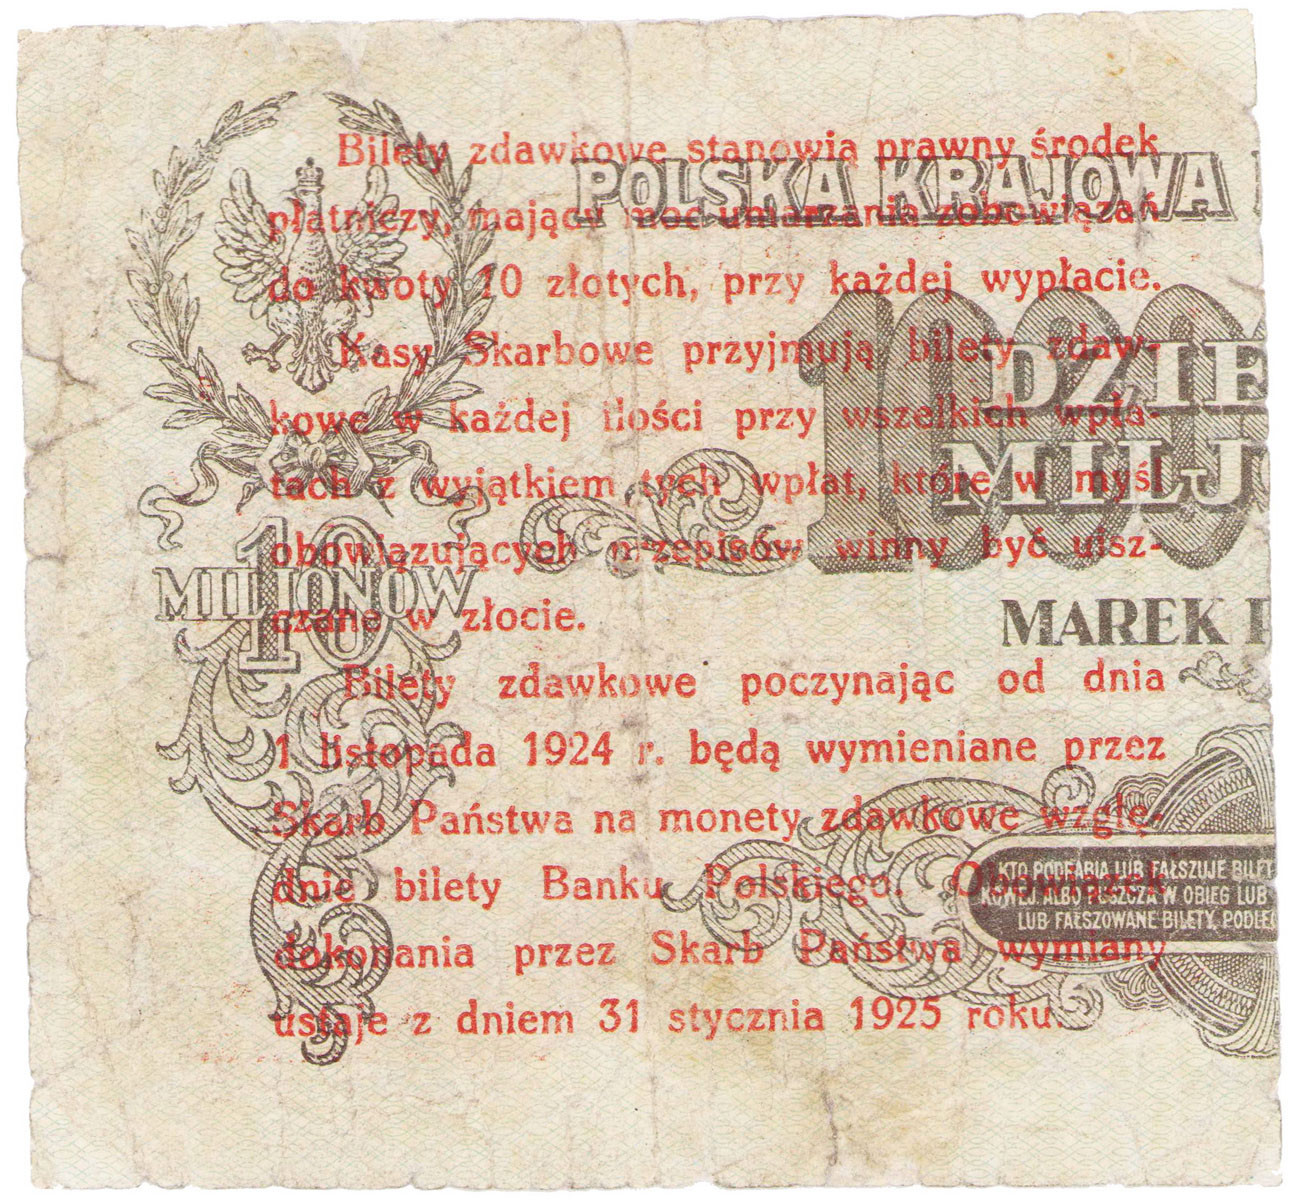 Bilety zdawkowe stanowią prawny środek
płatniczy, mający moc umarzania zobowiązań
do kwoty 10 złotych, przy każdej wypłacie.
Kasy Skarbowe przyjmują bilety zdaw-
kowe w każdej ilości przy wszelkich wpła-
tach z wyjątkiem tych wpłat, które w myśl
obowiązujących przepisów winny być uisz-
czane w złocie.
Bilety zdawkowe poczynając od dnia
1 listopada 1924 r. będą wymieniane przez
Skarb Państwa na monety zdawkowe wzglę-
dnie bilety Banku Polskiego. Obowiązek
dokonania przez Skarb Państwa wymiany
ustaje z dniem 31 stycznia 1925 roku.
POLSKA KRAJOWA
DZIE
MILJ
MAREK P
10
MILIONÓW
KTO PODRABIA LUB FAŁSZUJE BILET
KOWEJ ALBO PUSZCZA W OBIEG LUB
LUB FAŁSZOWANE BILETY, PODLEG